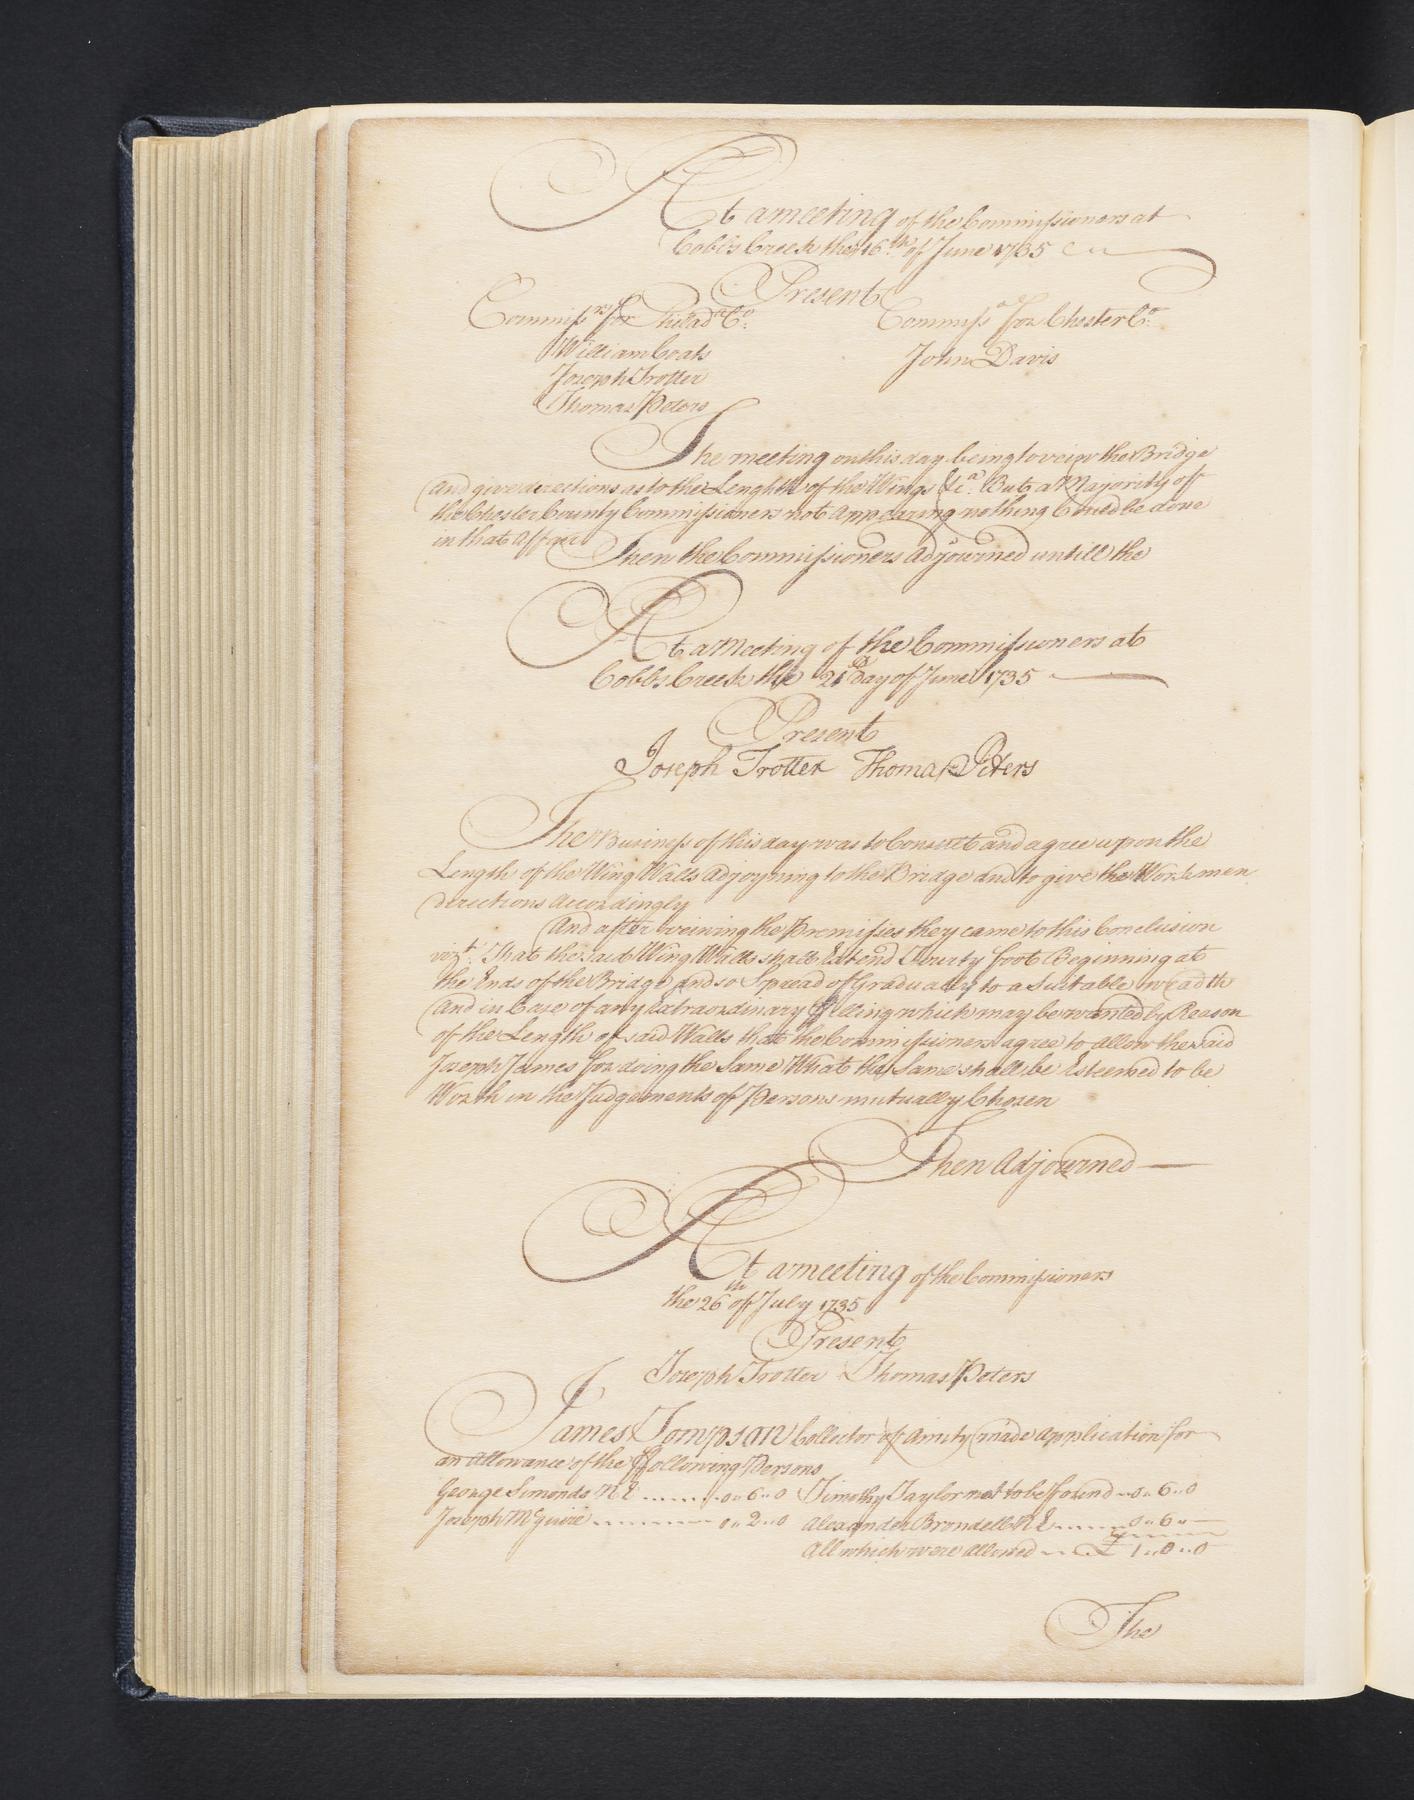 At a meeting of the Commissioners at
Cobbs Creek the 16th of June 1735
Present
Commissrs for Philada Co.
Commissrs for Chester Co.
William Coats
John Davis
Joseph Trotter
Thomas Peters
The meeting on this day being to veiw the Bridge
And give directions as to the Lenghth of the Wings &ca. But a Majority of
the Chester County Commissioners not appearing nothing Could be done
in that affair
Then the Commissioners adjourned untill the
At a Meeting of the Commissioners at
Cobbs Creek the 21 Day of June 1735
Present
Joseph Trotter Thomas Peters
The Business of this day was to Consult and agree upon the
Length of the Wing Walls Adjoyning to the Bridge and to give the Workmen
directions Accordingly
And after veiwing the Premisses they came to this Conclusion
vizt. That the said Wing Walls shall Extend Fourty foot Beginning at
the Ends of the Bridge and so Spread of Gradually to a Suitable wreadth
And in Case of any Extraordinary filling which may be wanted by Reason
of the Length of said Walls that the Commissioners agree to allow the said
Joseph James for doing the Same What the Same shall be Esteemed to be
Worth in the Judgements of Persons mutually Chosen
Then Adjourned
At a meeting of the Commissioners
the 26th of July 1735
Present
Joseph Trotter Thomas Peters
James Tompson Collector of Amity made Application for
an Allowance of the ffollowing Persons
George Simonds N E 0 " 6 " 0 Timothy Taylor not to be ffound 0 " 6 " 0
Joseph McGuire 0 " 2 " 0 Alexander Brondell N E 0 " 6 "
All which were allowed £ 1 " 0 " 0
The